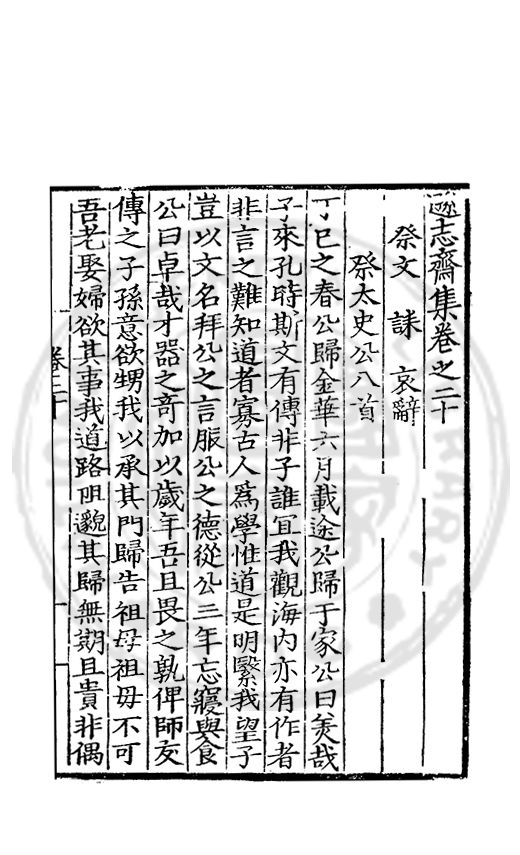 遜志齋集卷之二十
祭文 誄 哀辭
祭太史公八首
丁巳之春公歸金華六月載途公歸于家公曰羙哉
子來孔時斯文有傳非子誰冝我觀海内亦有作者
非言之難知道者寡古人爲學惟道是明繄我望子
豈以文名拜公之言服公之德從公三年忘寢與食
公曰卓哉才器之奇加以歲年吾且畏之孰俾師友
傳之子孫意欲甥我以承其門歸告祖母祖毋不可
吾老娶婦欲其事我道路阻邈其歸無期且貴非偶
卷二十